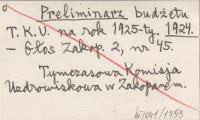 Preliminarz budżetu
T.K.U. na rok 1925-ty. 1924.
– Głos Zakop. 2, nr 45.
Tymczasowa Komisja
Uzdrowiskowa w Zakopanem.